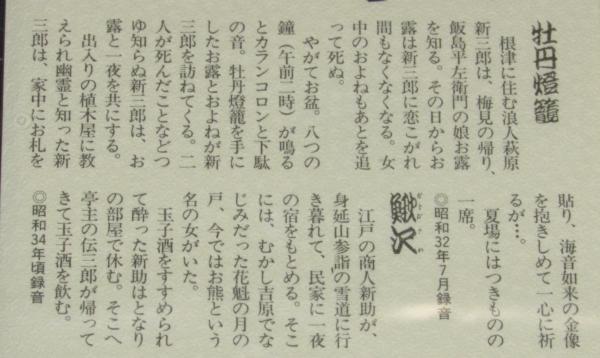 牡丹燈籠
根津に住む浪人萩原
新三郎は、梅見の帰り、
飯島平左衛門の娘お露
を知る。その日からお
露は新三郎に恋こがれ
間もなくなくなる。女
中のおよねもあとを追
って死ぬ。
やがてお盆。八つの
鐘（午前二時）が鳴る
とカランコロンと下駄
の音。牡丹燈籠を手に
したお露とおよねが新
三郎を訪ねてくる。二
人が死んだことなどつ
ゆ知らぬ新三郎は、お
露と一夜を共にする。
出入りの植木屋に教
えられ幽霊と知った新
三郎は、家中にお札を
貼り、海音如来の金像
を抱きしめて一心に祈
るが…。
夏場にはつきものの
一席。
◎昭和32年7月録音
鰍沢
江戸の商人新助が、
身延山参詣の雪道に行
き暮れて、民家に一夜
の宿をもとめる。そこ
には、むかし吉原でな
じみだった花魁の月の
戸、今ではお熊という
名の女がいた。
玉子酒をすすめられ
て酔った新助はとなり
の部屋で休む。そこへ
亭主の伝三郎が帰って
きて玉子酒を飲む。
◎昭和34年頃録音